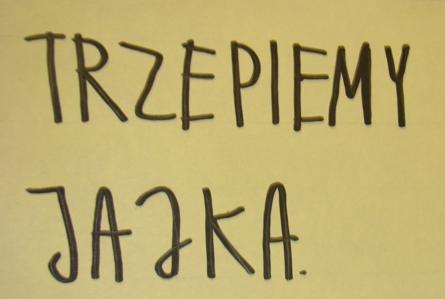 TRZEPIEMY
JAJKA.